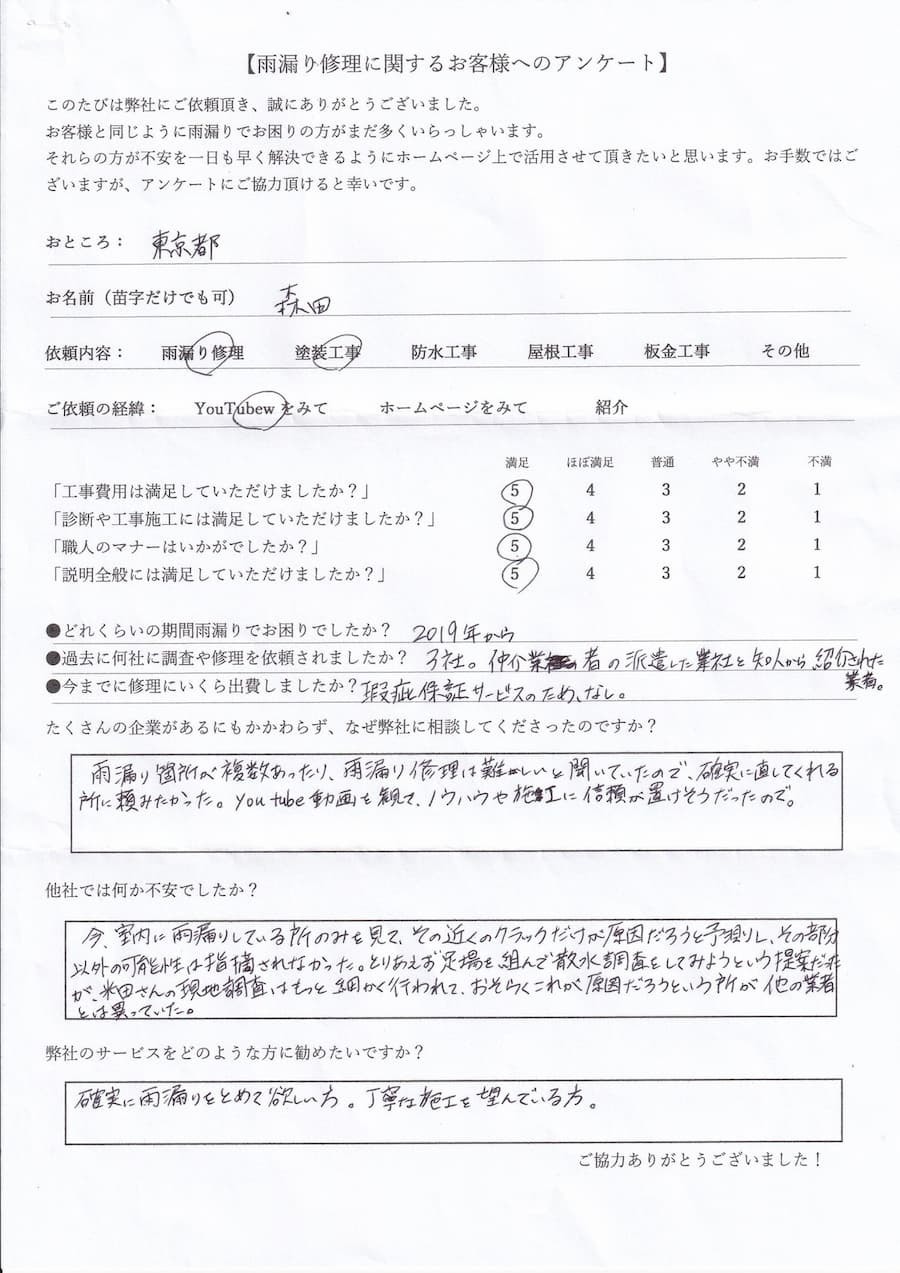 【雨漏り修理に関するお客様へのアンケート】
このたびは弊社にご依頼頂き、誠にありがとうございました。
お客様と同じように雨漏りでお困りの方がまだ多くいらっしゃいます。
それらの方が不安を一日も早く解決できるようにホームページ上で活用させて頂きたいと思います。お手数ではご
ざいますが、アンケートにご協力頂けると幸いです。
おところ： 東京都
お名前（苗字だけでも可） 森田
依頼内容： 雨漏り修理 塗装工事 防水工事 屋根工事 板金工事 その他
ご依頼の経緯： YouTubew をみて ホームページをみて 紹介
満足 ほぼ満足 普通 やや不満 不満
「工事費用は満足していただけましたか？」 5 4 3 2 1
「診断や工事施工には満足していただけましたか？」 5 4 3 2 1
「職人のマナーはいかがでしたか？」 5 4 3 2 1
「説明全般には満足していただけましたか？」 5 4 3 2 1
●どれくらいの期間雨漏りでお困りでしたか？ 2019年から
●過去に何社に調査や修理を依頼されましたか？ 3社。仲介業者の派遣した業社と知人から紹介された
業者。
●今までに修理にいくら出費しましたか？瑕疵保証サービスのため、なし。
たくさんの企業があるにもかかわらず、なぜ弊社に相談してくださったのですか？
雨漏り箇所が複数あったり、雨漏り修理は難かしいと聞いていたので、確実に直してくれる
所に頼みたかった。You tube動画を観て、ノウハウや施工に信頼が置けそうだったので。
他社では何か不安でしたか？
今、室内に雨漏りしている所のみを見て、その近くのクラックだけが原因だろうと予測し、その部分
以外の可能性は指摘されなかった。とりあえず足場を組んで散水調査をしてみようという提案だった
が、米田さんの現地調査はもっと細かく行われて、おそらくこれが原因だろうという所が他の業者
とは異っていた。
弊社のサービスをどのような方に勧めたいですか？
確実に雨漏りをとめて欲しい方。丁寧な施工を望んでいる方。
ご協力ありがとうございました！